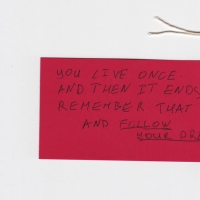 YOU LIVE ONCE
AND THEN IT ENDS
REMEMBER THAT
AND FOLLOW
YOUR